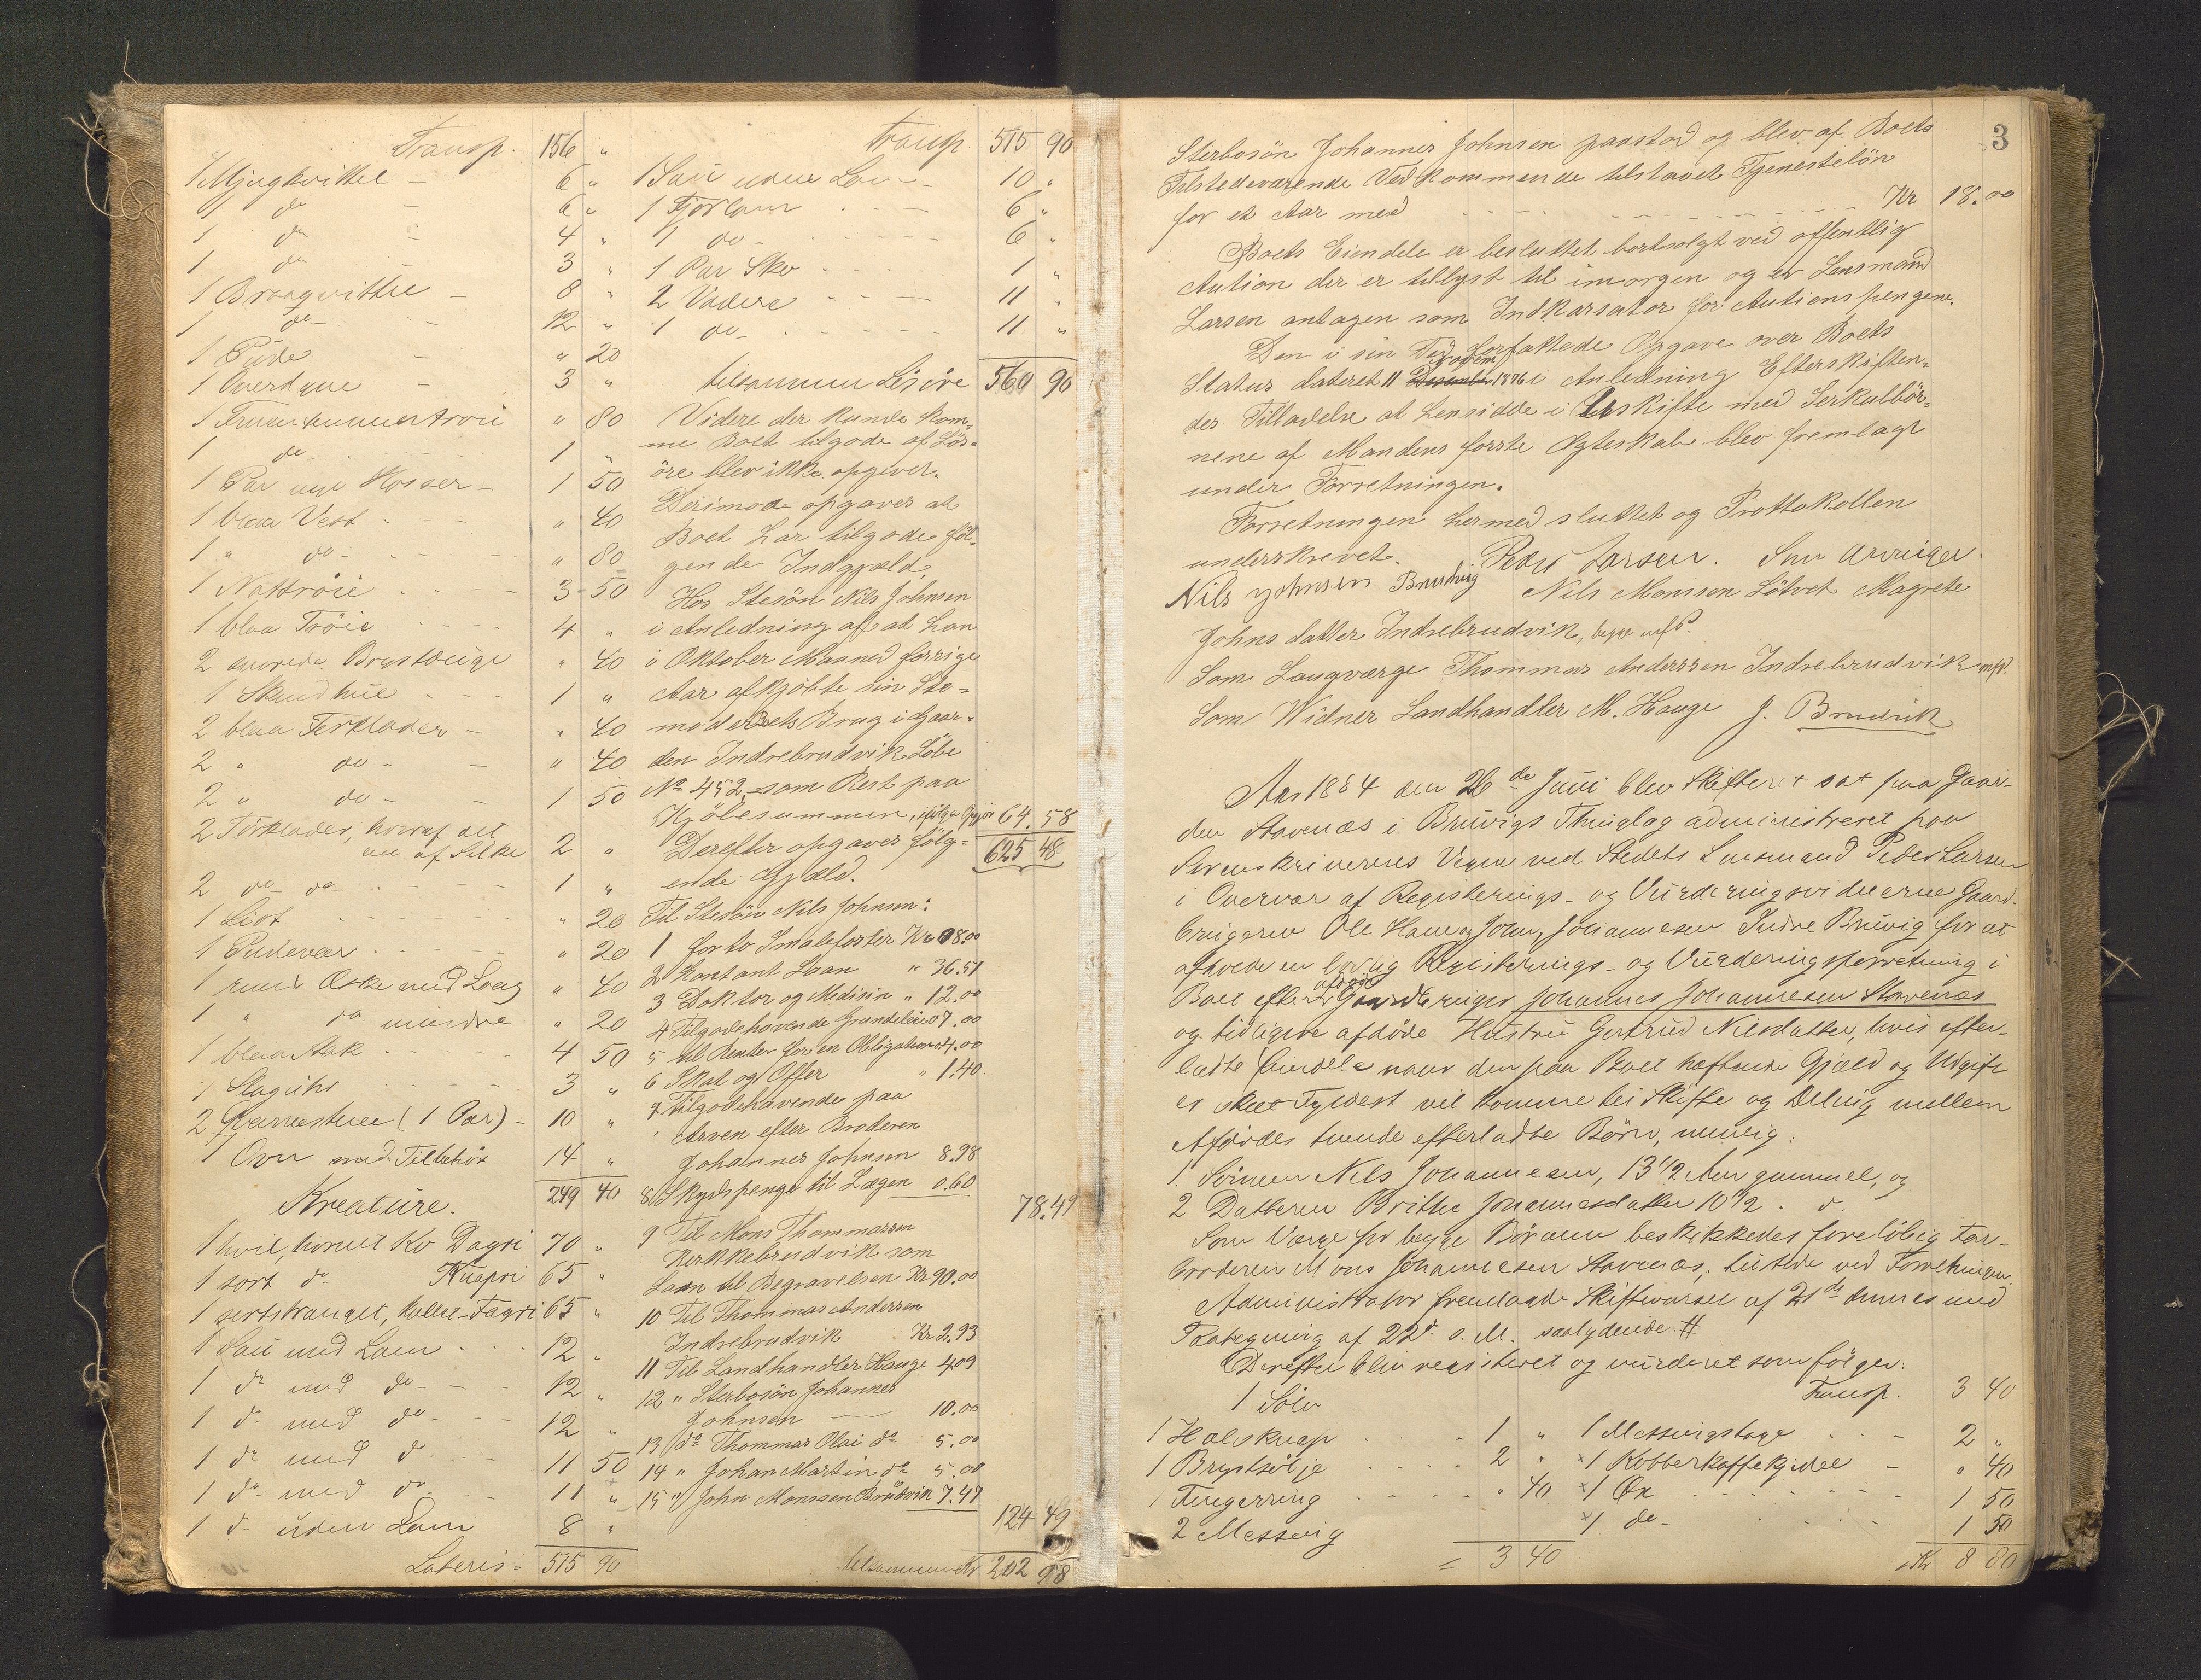 Transp. 156 "
1 Mjugkvittel - 6 "
1 do - 6 "
1 do - 4 "
1 do - 3 "
1 Braagvittel - 8 "
1 do - 12 "
1 Pude - " 20
1 Overdyne - 3 "
1 Fruentømmertrøie " 80
1 do - 1 "
1 Par nye Hosser - 1 50
1 blaa Vest - " 40
1 " do - " 80
1 Nattrøie 3 50
1 blaa Trøie 4 "
2 Brystduge " 40
1 Skindhue 1 "
2 blaa Tørklæder - " 40
2 " do - " 40
2 " do - 1 50
2 Tørklæder, hvoraf det
ene af Silke 2 "
2 do do 1 "
1 List " 20
1 Pudevær " 20
1 rund Æske med Laag " 40
1 " do mindre " 20
1 blaa Stak 4 50
1 Slaguhr 3 "
2 (1 Par) - 10 "
1 Ovn med Tilbehør 14 "
249 40
Kreature.
1 hvil, hornet Ko Dagri 70 "
1 sort do 65 "
1 kollet - Fagri 65 "
1 Sau med Lam 12 "
1 do med do - 12 "
1 do med do - 12 "
1 do med do 11 50
1 do med do 11 "
1 do uden Lam 8 "
Lateris = 515 90
Transp. 515 90
1 Sau uden Lam - 10 "
1 Fjorlam 6 "
1 do - 6 "
1 Par Sko 1 "
2 Vædere 11 "
1 do - 11 "
tilsammen Løsøre 560 90
Videre der kunde kom-
me Boet tilgode af Løs-
øre blev ikke opgivet.
Derimod opgaves at
Boet har tilgode føl-
gende Indgjæld
Hos Stesøn Nils Johnsen
i Anledning af at han
i Oktober Maaned forrige
Aar afkjøbte sin Ste-
moder Boets Brug i Gaar-
den Indrebrudvik Løbe
No 452 som Rest paa
Kjøbesummen, ifølge Opgjør 64.58
Derefter opgaves følg- 625 48
ende Gjæld.
Til Stesøn Nils Johnsen:
1 for to Smaleforter Kr 08.00
2 Kontant Laan " 36.51
3 Doktor og Medisin " 12.00
4 Tilgodehavende Grundeleie 07.00
5 til Renter for en Obligation 4.00
6 Skat og Offer " 1.40
7 Tilgodehavende paa
Arven efter Broderen
Johannes Johnsen 8.98
8 Skydspenge til Lægen 0.60
78.49
9 Til Mons Thommassen
Kerkkebrudvik som
Laan til Begravelsen Kr 90.00
10 Til Thommas Anderssen
Indrebrudvik Kr 2.93
11 Til Landhandler Hauge 4.09
12 " Sterbosøn Johannes
Johnsen 10.00
13 do Thommas Olai do 5.00
14 " Johan Martin do 5.00
15 " John Monssen Brudvik 7.47
124 49
tilsammen Kr 202 98
3
Sterbosøn Johannes Johnsen paastod og blev af Boets
Tilstedeværende Vedkommende tilstaaet Tjenesteløn
for et Aar med Kr 18.00
Boets Eiendele er besluttet bortsolgt ved offentlig
Aution der er tillyst til imorgen og er Lensmand
Larsen antagen som Indkassator for Autionspengene.
Den i sin Tid forfattede Opgave over Boets
Status dateret 11 Desember 1876 i Anledning Efterskiften-
des Tilladelse at hensidde i Uskifte med Serkulbør-
nene af Mandens første Ægteskab blev fremlagt
under Forretningen.
Forretningen hermed sluttet og Prottokollen
underskrevet. Peder Larsen. Som Arvinger.
Nils Johnsen Brudvig Nils Monssen Løtvet Magrete
Johnsdatter Indrebrudvik, begge m.f.P.
Som Laugværge Thommas Anderssen Indrebrudvik m.f.P.
Som Widner Landhandler M. Hauge J. Brudvik
Aar 1884 den 26de Juni blev Skifteret sat paa Gaar-
den Stavenæs i Bruvigs Thinglag administreret paa
Sorenskriverens Vegne ved Stedets Lensmand Peder Larsen
i Overvær af Registerings- og Vurderingsvidnerne Gaard-
brugerne Ole Hane og John Johannesen Indre Bruvig for at
afholde en lovlig Registerings- og Vurderingsforretning i
Boet efter afdøde Gaardbruger Johannes Johannesen Stavenæs
og tidligere afdøde Hustru Gertrud Nilsdatter, hvis efter-
ladte Eiendele naar den paa Boet hæftende Gjæld og Udgift
er skeet Fyldest vil komme til Skifte og Deling mellem
Afdødes tvende efterladte Børn, nemlig:
1 Sønnen Nils Johannesen, 13 1/2 Aar gammel, og
2 Datteren Brithe Johannesdatter 10 1/2 . d.
Som Værge for begge Børnene beskikkedes foreløbig Far-
broderen Mons Johannesen Stavenæs, tilstede ved Forretningen.
Administrator fremlagde Skiftevarsel af 21de dennes med
Paategning af 22d. s. M. saalydende: #
Derefter blev registeret og vurderet som følger:
1 Sølv
1 Halsknap 1 "
1 Brystsølje 2 "
1 Fingerring " 40
2 Messing
= 3 40
Transp. 3 40
1 Messingstage 2 "
1 Kobberkaffekjedel - " 40
1 Øx 1 50
1 do - 1 50
Kr 8 80